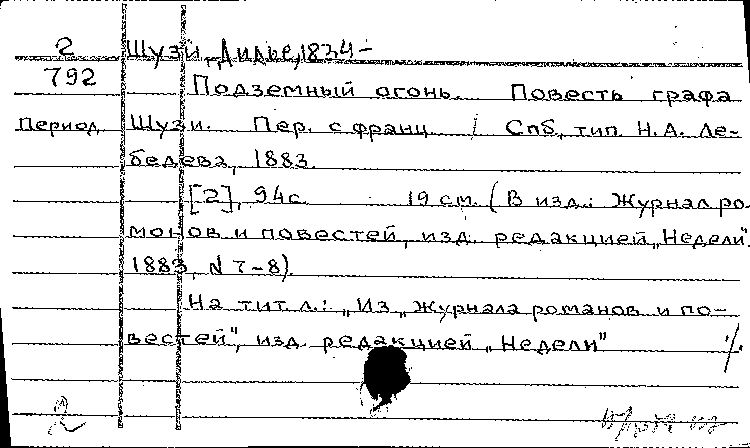 2 Шузи, Дидье, 1834-
792 Подземный огонь. Повесть графа
Период. Шузи. Пер. с франц. / Спб, тип. Н.А. Ле-
бедева, 1883.
[2], 94с. 19 см. (В изд.: Журнал ро-
монов и повестей, изд. редакцией „Недели".
1883, N 7-8).
На тит. л.: „Из „Журнала романов и по-
вестей", изд. редакцией „Недели"
2